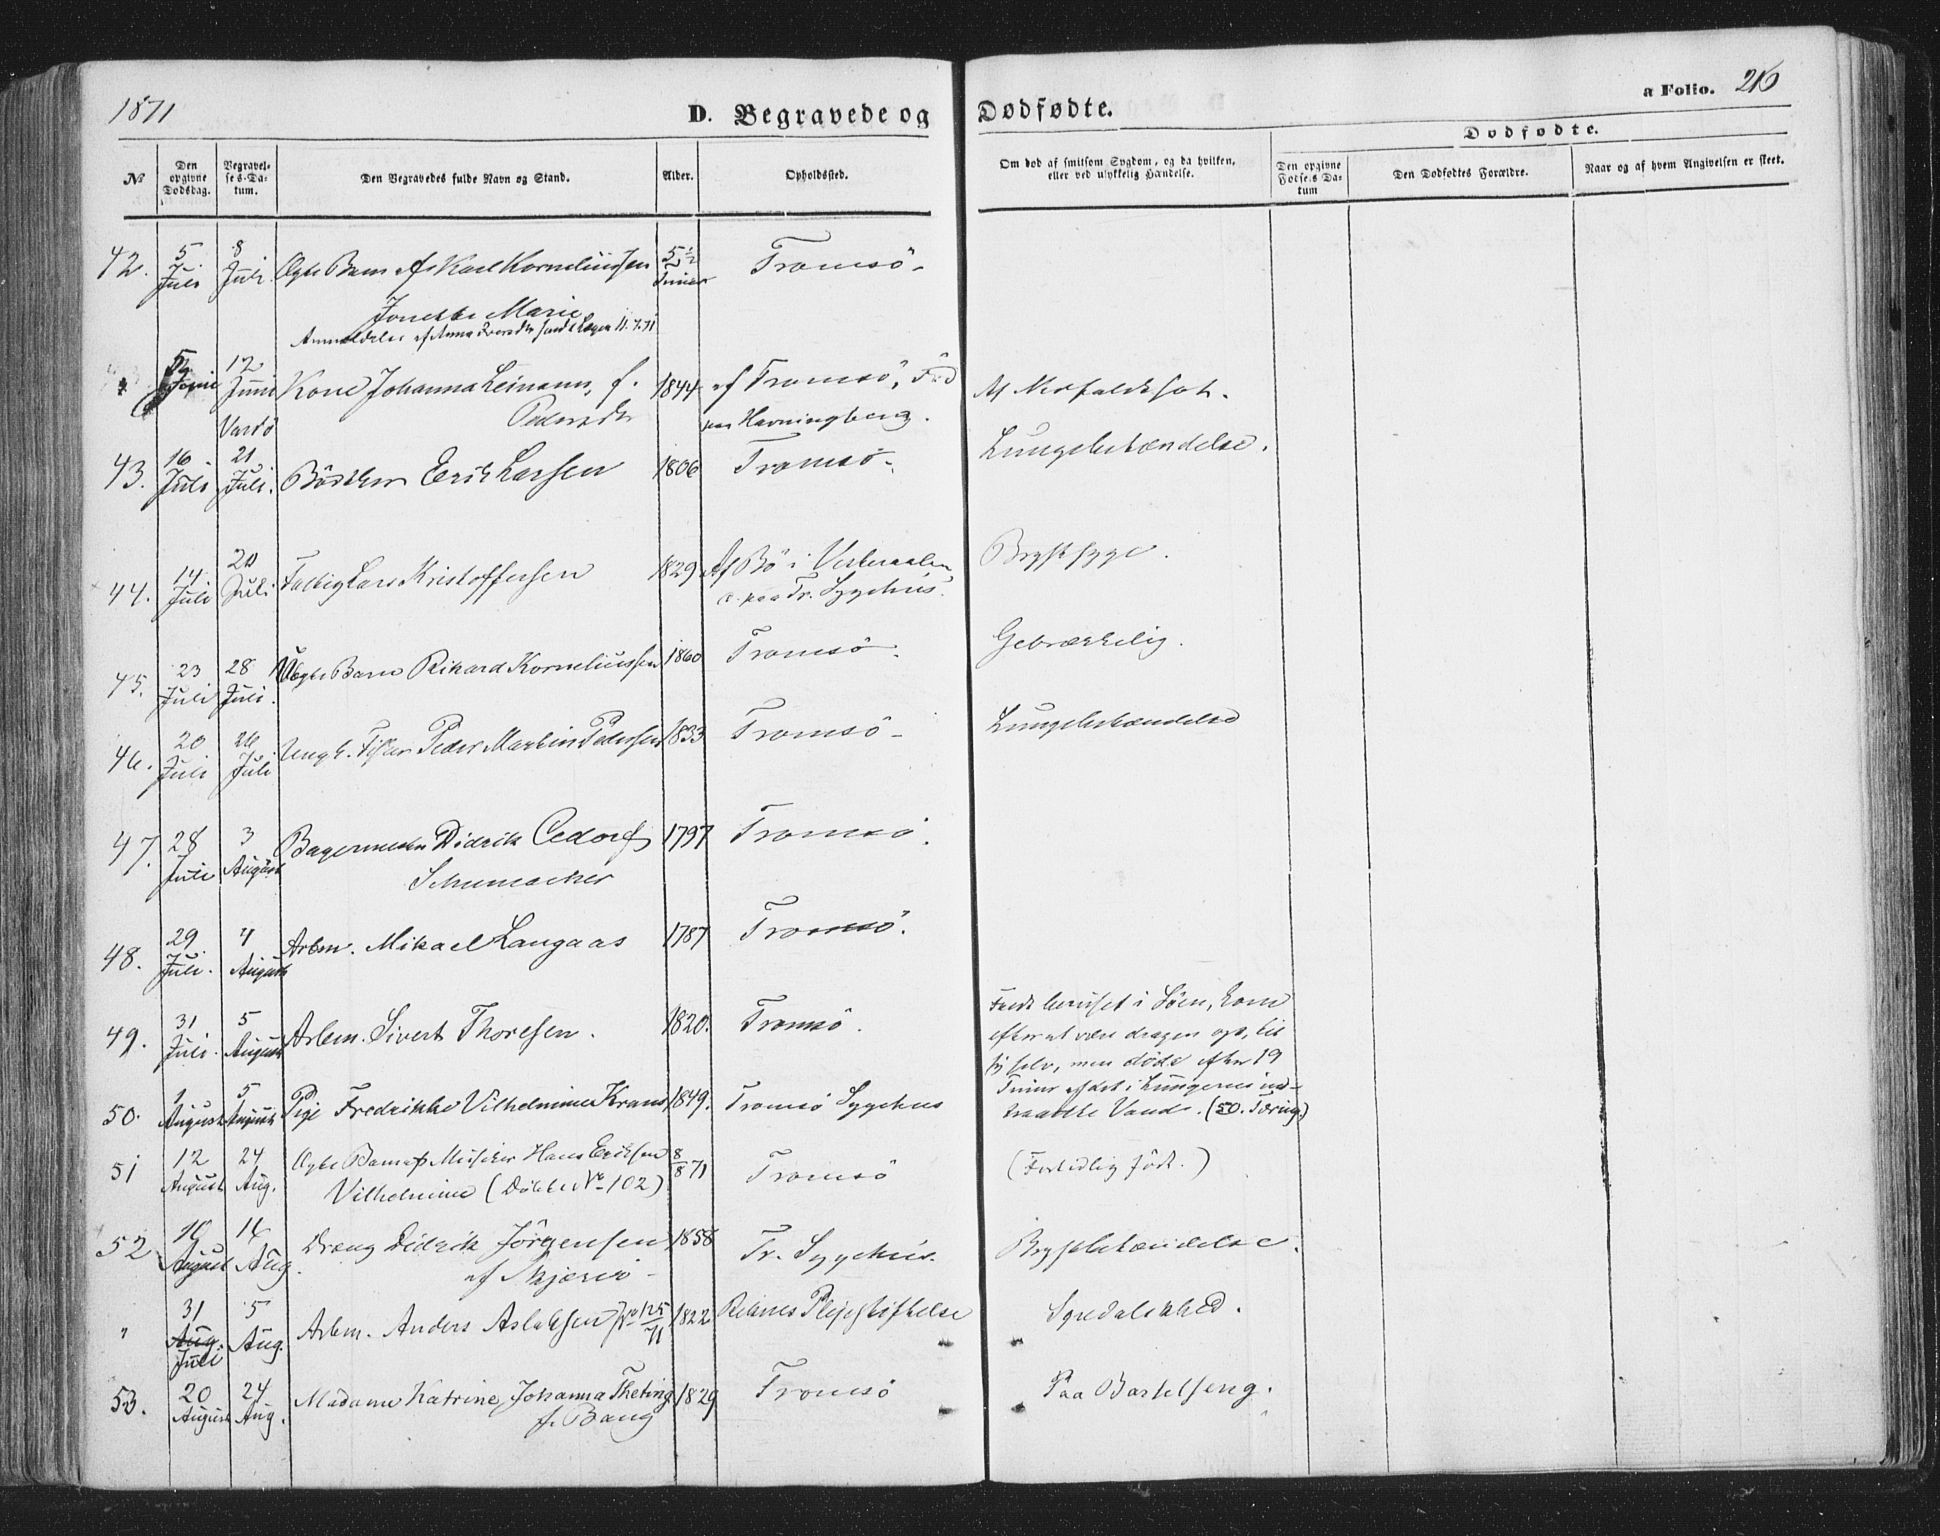 1871
D. Begravede og Dødfødte.
a Folio. 216
Dødfødte.
No
Den opgivne Dødsdag.
Begravelses-Datum.
Den Begravedes fulde Navn og Stand.
Alder.
Opholdssted.
Om død af smitsom Sygdom, og da hvilken, eller ved ulykkelig Hændelse.
Den opgivne Fødsels Datum
Den Dødfødtes Forældre.
Naar og af hvem Angivelsen er skeet.
42. 5 Juli 8 Juli Ægte Barn af Karl Korneliussen 5 1/2 Timer Tromsö
Marie
Anmeldelse af Anna 11.7.71
12 Juni Vardö Kone Johanna Leimann, f. Pedersdtr 1844 af Tromsö, paa Havningberg.
43. 16 Juli 21 Juli. Bödker Erik Larsen 1806 Tromsö. Lungebetændelse.
44. 14 Juli 20 Juli Fattig Lars Kristoffersen 1829 Af Bö i Vesteraalen paa Tr. Sygehus. Brystsyge.
45. 23 Juli 28 Juli. Uægte Barn Rikard Korneliussen 1860 Tromsö. Gebrækkelig.
46. 20 Juli 26 Juli Ungk. Fisker Peder Martin Pedersen 1833 Tromsö Lungebetændelse
47. 28 Juli 3 August Bagermester Didrik Cedorf 1797 Tromsö.
Schumacher
48. 29 Juli. 4 August Arbm. Mikael Langaas 1787 Tromsö.
49. 31 Juli. 5 August Arbm. Sivert Thoresen. 1820. Tromsö.
Faldt beruset i Söen, kom
efter at være dragen op, til
sig selv, men döde efter 19
Timer af det i Lungerne ind-
traadte Vand. (50. Tæring)
50. 1 August 5 August Pige Fredrikke Vilhelmine Krans 1849. Tromsö Sygehus
51 12 August 24 Aug. Ægte Barn af Musiker Hans Eriksen 8/8 71 Tromsö (Fortidlig födt.)
Vilhelmine (Döbte No 102)
52 10 August 16 Aug. Dreng Didrik Jörgensen 1858 Tr. Sygehus. Brystbetændelse.
af Skjærvö
" 31 Aug. Juli 5 Aug. Arbm. Anders Aslaksen 125/71 1822 Rebnes Plejestiftelse Spedalskhed.
53. 20 August 24 Aug. Madame Katrine Johanna Theting 1829 Tromsö Paa Barselseng.
f. Bang